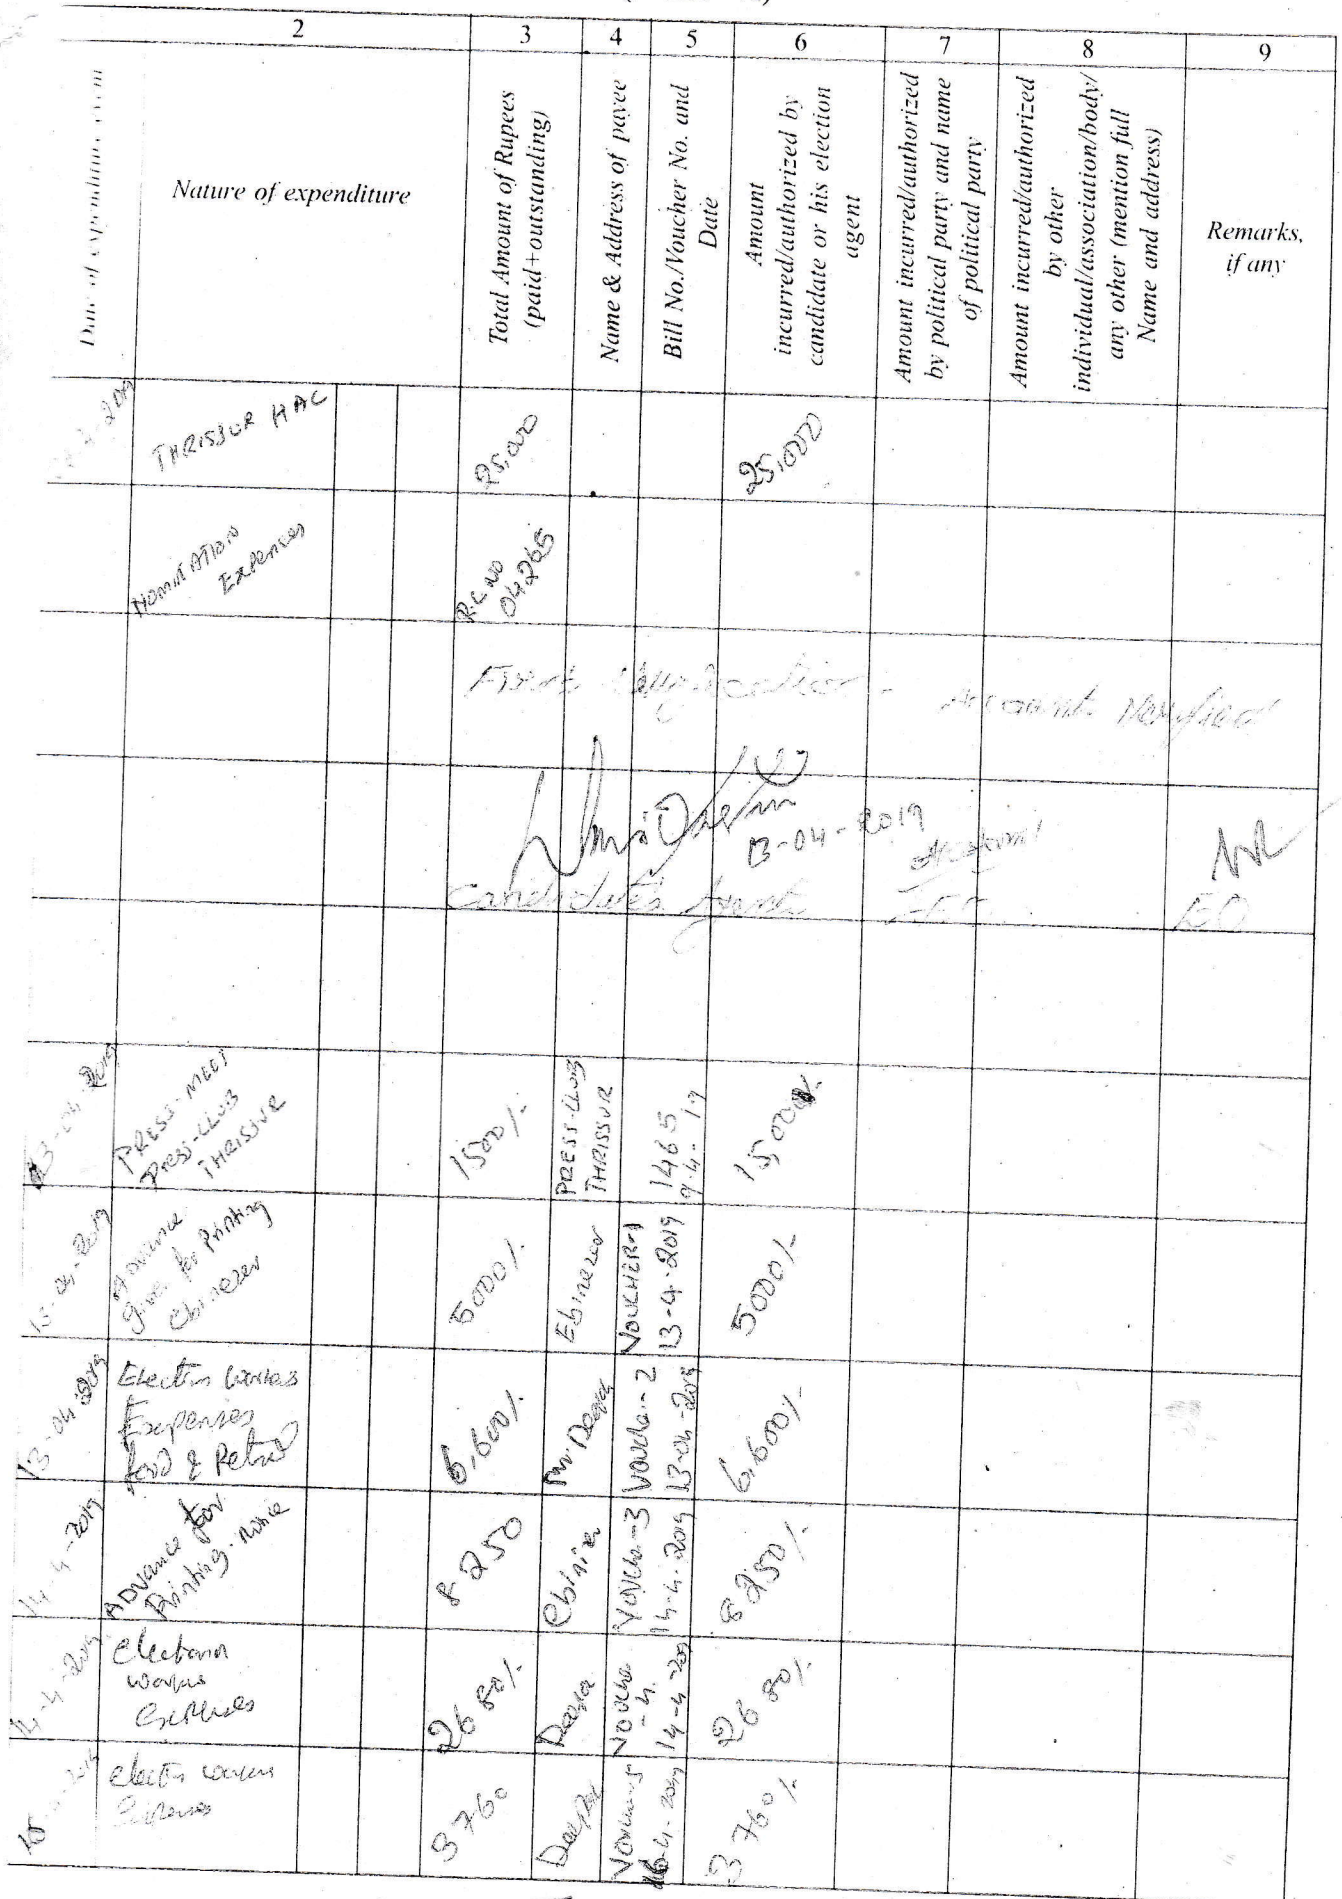 2 3 4 5 6 7 8 9
Date of expenditure/event
Nature of expenditure
Total Amount of Rupees
(paid+outstanding)
Name & Address of payee
Bill No./Voucher No. and
Date
Amount
incurred/authorized by
candidate or his election
agent
Amount incurred/authorized
by political party and name
of political party
Amount incurred/authorized
by other
individual/association/body/
any other (mention full
Name and address)
Remarks,
if any
THRISSUR HAC
25,000
25,000
NOMINATION
Expences
R.C NO
04265
Account Verified
13-04-2019
Candidate's Agent
EO
13-04-2019
PRESS-MEET
PRESS-CLUB
THRISSUR
1500/-
PRESS-CLUB
THRISSUR
1465
9.4.19
13-04-2019
Advance
given for Printing
Ebinezer
5000/-
Ebinezer
VOUCHER-1
13-4-2019
5000/-
13-04-2019
Expenses
6,600/-
Voucher-2
13-04-2019
6,600/-
14-4-2019
ADVance for
Printing-Notice
8250
Voucher-3
14-4-2019
8250/-
14-4-2019
2680/-
Voucher
-4
14-4-2019
2680/-
3760
3760/-